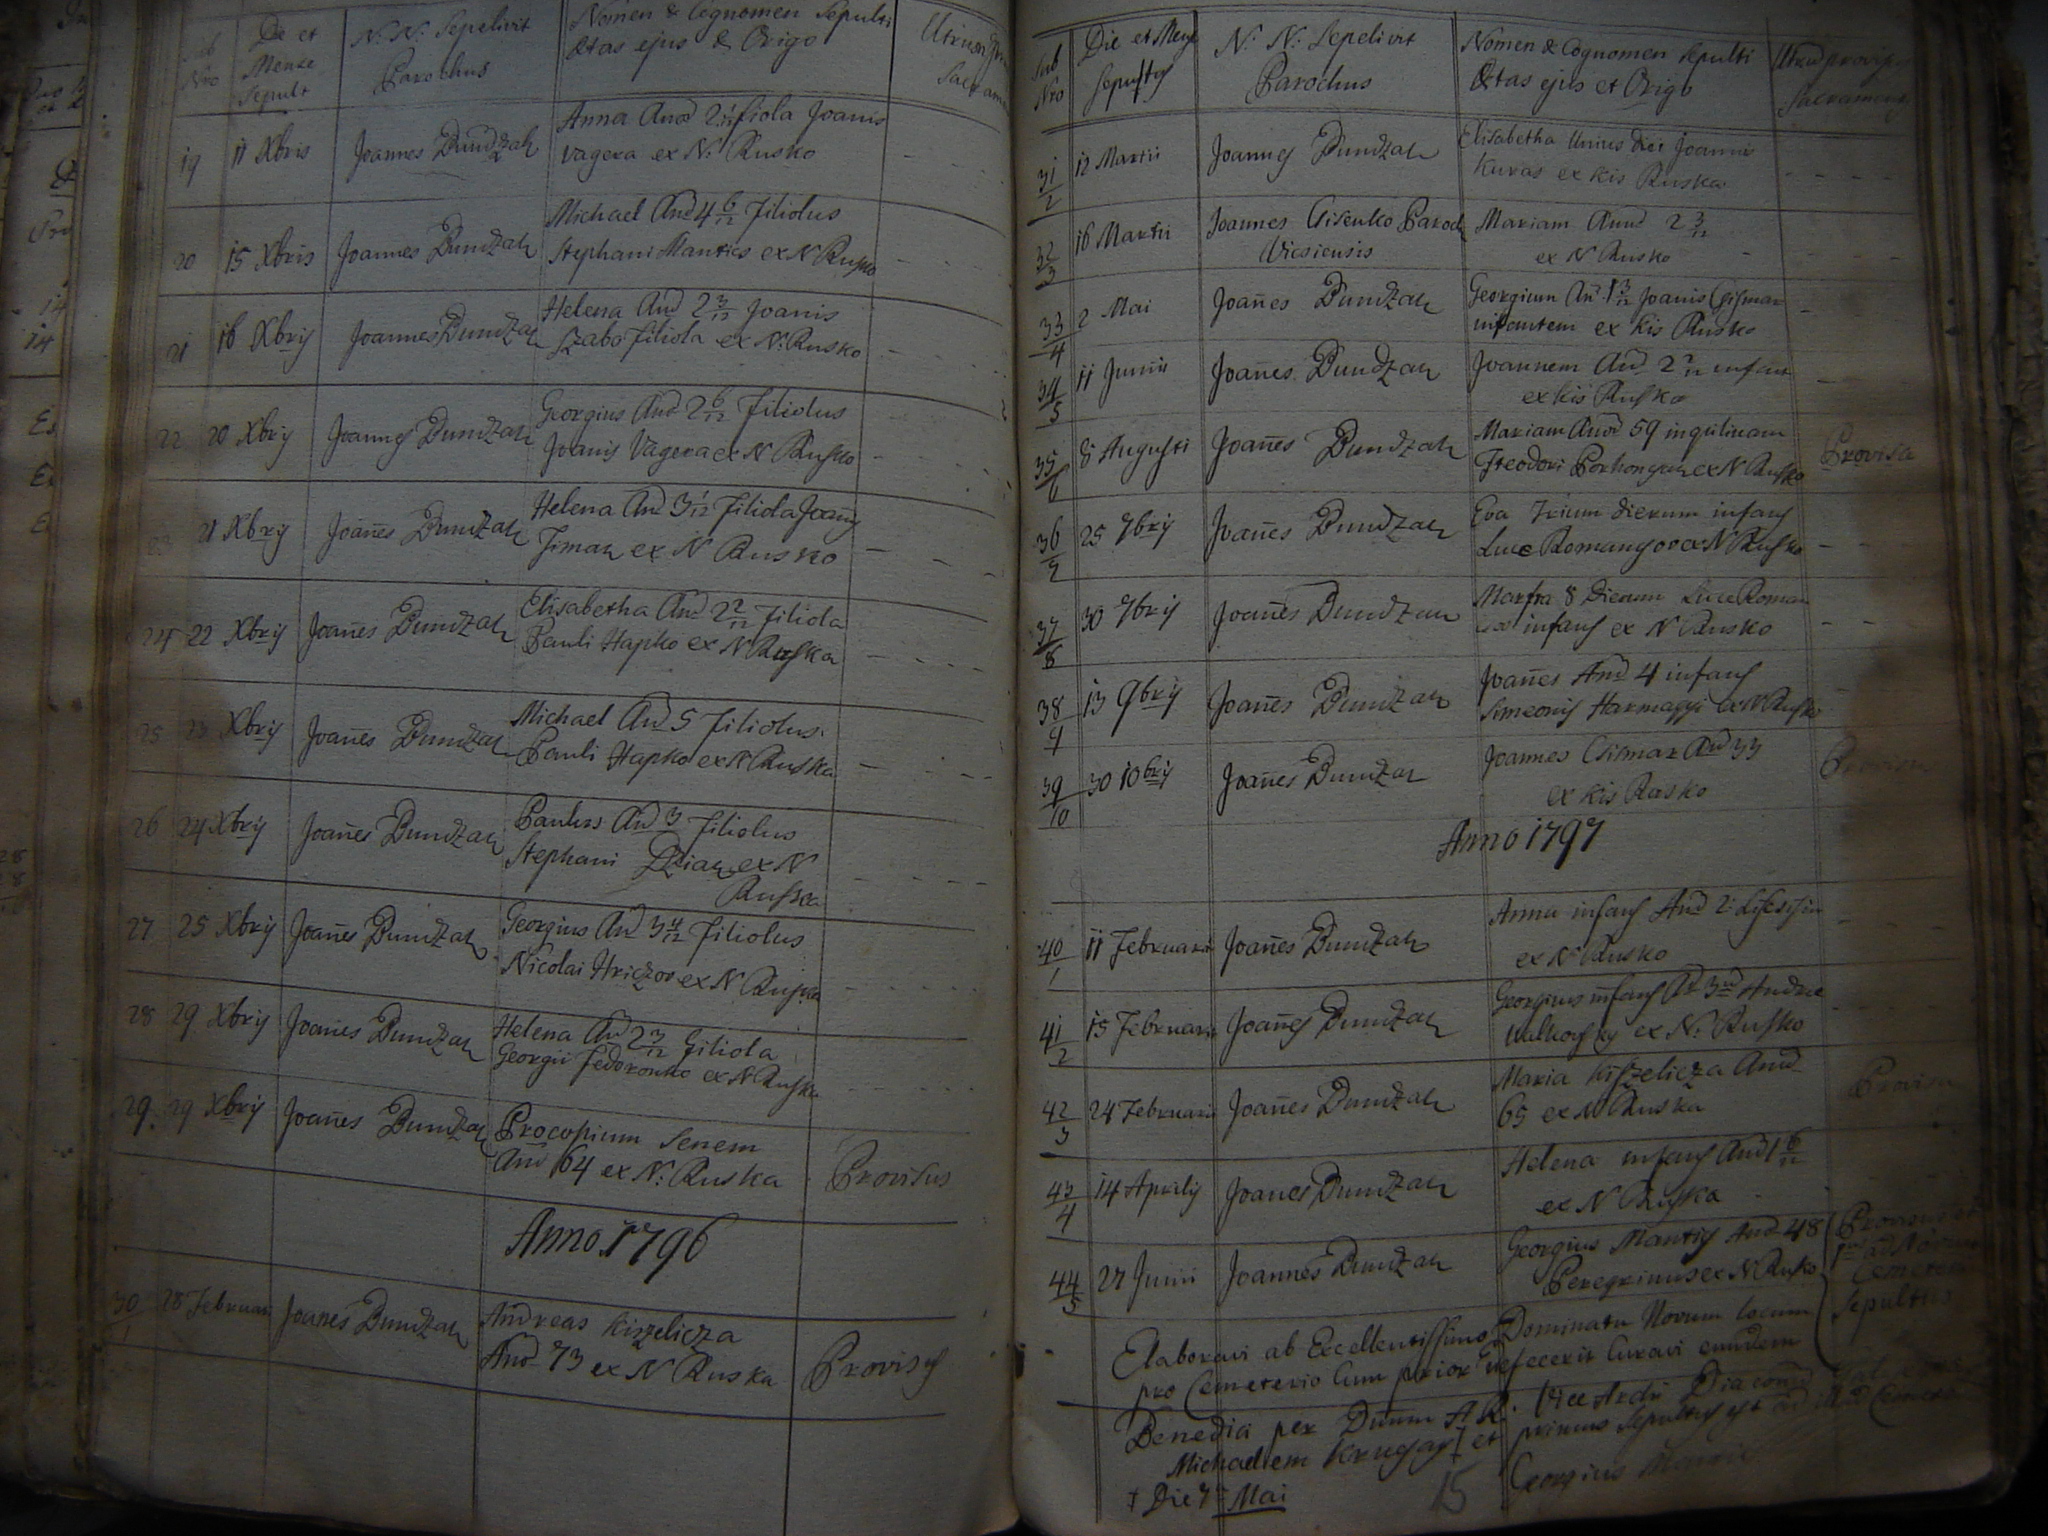 Sub Nro
Die et Mense Sepult
N: N: Sepelivit Parochus
Nomen & Cognomen Sepulti
Ætas ejus & Origo
Utrum
Sacram
19 11 Xbris Joannes Dundzak Anna Anõ 2 1/12 fiola Joanis
Vagera ex N: Rusko
20 15 Xbris Joannes Dundzak Michael Anõ 4 6/12 filiolus
Stephani Mantics ex N Rusko
21 16 Xbris Joannes Dundzak Helena Anõ 2 3/12 Joanis
Szabo filiola ex N: Rusko
22 20 Xbris Joannes Dundzak Georgius Anõ 2 6/12 filiolus
Joanis Vagera ex N Rusko
21 Xbris Joan̄es Dundzak Helena Anõ 3 1/12 filiola Joan̄is
Timar ex N Rusko
24 22 Xbris Joan̄es Dundzak Elisabetha Anõ 2 2/12 filiola
Pauli Hapko ex N Ruska
25 23 Xbris Joan̄es Dundzak Michael Anõ 5 filiolus
Pauli Hapko ex N Ruska
26 24 Xbris Joan̄es Dundzak Paulus Anõ 3 filiolus
Stephani ex N
Ruska
27 25 Xbris Joan̄es Dundzak Georgius Anõ 3 4/12 filiolus
Nicolai Hriczov ex N Ruska
28 29 Xbris Joan̄es Dundzak Helena Anõ 2 3/12 filiola
Georgii Fedoronko ex N Ruska
29. 29 Xbris Joan̄es Dundzak Procopium Senem
Anõ 64 ex N: Ruska Provisus
Anno 1796
30/1 28 Februari Joan̄es Dundzak Andreas Kiszelicza
Anõ 73 ex N Ruska Provisus
Sub Nro
Die et Mense Sepultus
N: N: Sepelivit Parochus
Nomen & Cognomen Sepulti
Ætas ejus et Origo
Sacramentis
31/2 12 Martii Joannes Dundzak Elisabetha Unius diei Joannis
Kuvas ex Kis Ruska
32/3 16 Martii Joannes Csisenko Paroch Mariam Anõ 2 3/12
Vicsiensis ex N Rusko
33/4 2 Mai Joan̄es Dundzak Georgium An̄ 1 3/12 Joanis Csismar
infantem ex Kis Rusko
34/5 11 Junii Joan̄es Dundzak Joannem Anõ 2 infant
ex kis Rusko
35/6 8 Augusti Joan̄es Dundzak Mariam Anõ 59 inquilinam
Teodori ex N Rusko Provisa
36/7 25 7bris Joan̄es Dundzak Eva Trium dierum infans
Luce ex N Rusko
37/8 30 7bris Joan̄es Dundzak Marfra 8 dierum Luce Roman
infans ex N Rusko
38/9 13 9bris Joan̄es Dundzak Joan̄es Anõ 4 infans
Simeonis Harmaggi ex N Rusko
39/10 30 10bris Joan̄es Dundzak Joannes Csismar Anõ 33
ex Kis Rusko Provisus
Anno 1797
40/1 11 Februari Joan̄es Dundzak Anna infans Anõ 2:
ex N: Rusko
41/2 15 Februari Joan̄es Dundzak Georgius infans 3 Andree
Walkovsky ex N: Rusko
42/3 24 Februari Joan̄es Dundzak Maria Kiszelicza Anõ
65 ex N Ruska Provisa
43/4 14 Aprilis Joanes Dundzak Helena infans Anõ 1 6/12
ex N Ruska
44/5 27 Junii Joannes Dundzak Georgius Mantics Anõ 48
Peregrinus ex N Rusko
Provisus et
ad Novum
Cemeter
Sepultus
Elaboravi ab Excellentissimo Dominatu Novum locum
pro Cemeterio Cum prior defecerit Curavi eundem
Benedici per Dnum A. R. Vice Archi Diaconum
Michaelem † et primus Sepultus est ad
† Die 7ma Mai 15 Georgius